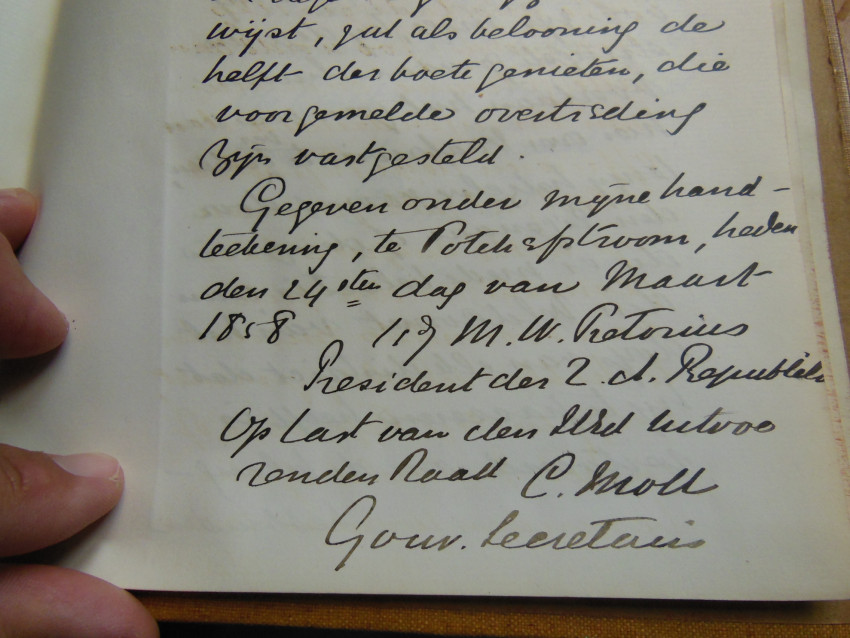 wijst, zal als belooning de
helft der boete genieten, die
voorgemelde overtreding
zijn vastgesteld.
Gegeven onder mijne hand-
teekening, te Potchefstroom, heden
den 24sten dag van Maart
1858 M. W. Pretorius
President der Z. A. Republiek
Op last van den WEd Uitvoe
renden Raad C. Moll
Gouv. Secretaris